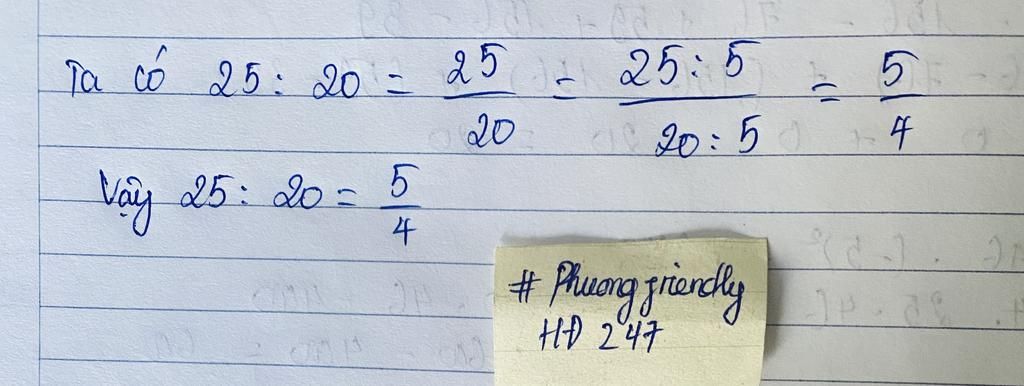 Ta có 25 : 20 = 25/20 = 25 : 5/20 : 5 = 5/4
Vậy 25 : 20 = 5/4
# Phuong friendly
HĐ 247